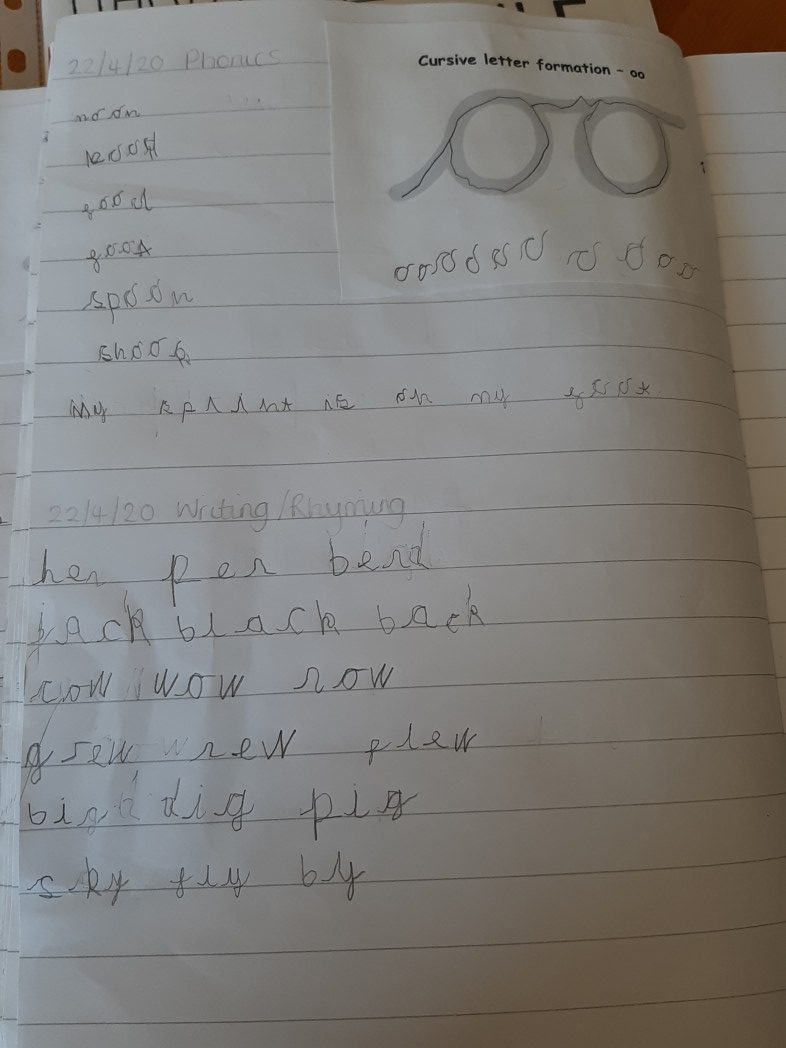 22/4/20 Phonics
Cursive letter formation - oo
noon
food
foot
spoon
shoop
oo oo o o o o o o o o
My splint is on my foot.
22/4/20 Writing/Rhyming
hen pen bend
jack black back
cow wow now
grew new flew
big dig pig
sky fly by